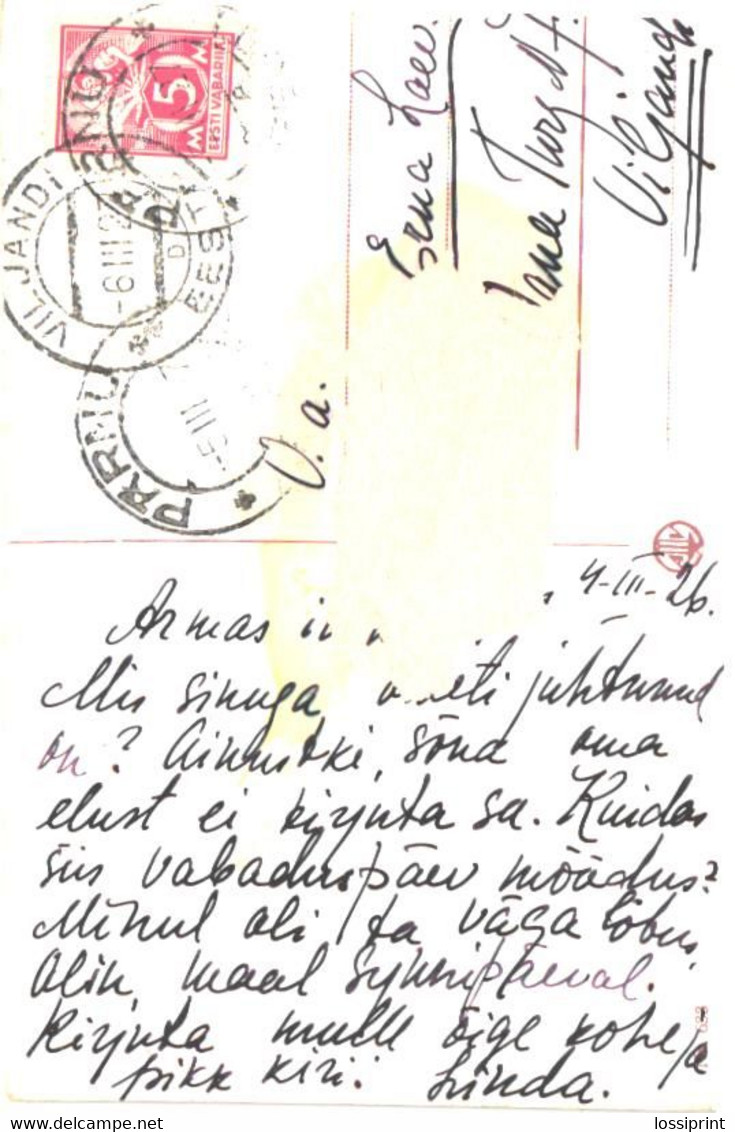 5 M
EESTI VABARIIK
VILJANDI
-6 III 2
EESTI
PÄRNU
-5 III
PÄRNU
Erna Loew.
Turg
Viljandi
V. a.
4-III-26.
Armas
Mis sinuga juhtunud
on? Ainustki sõna oma
elust ei kirjuta sa. Kuidas
siis vabaduspäev möödus?
Minul oli ta väga lõbus,
olin maal sünnipäeval.
Kirjuta mulle õige kohe ja
pikk kiri. Linda.
lossiprint